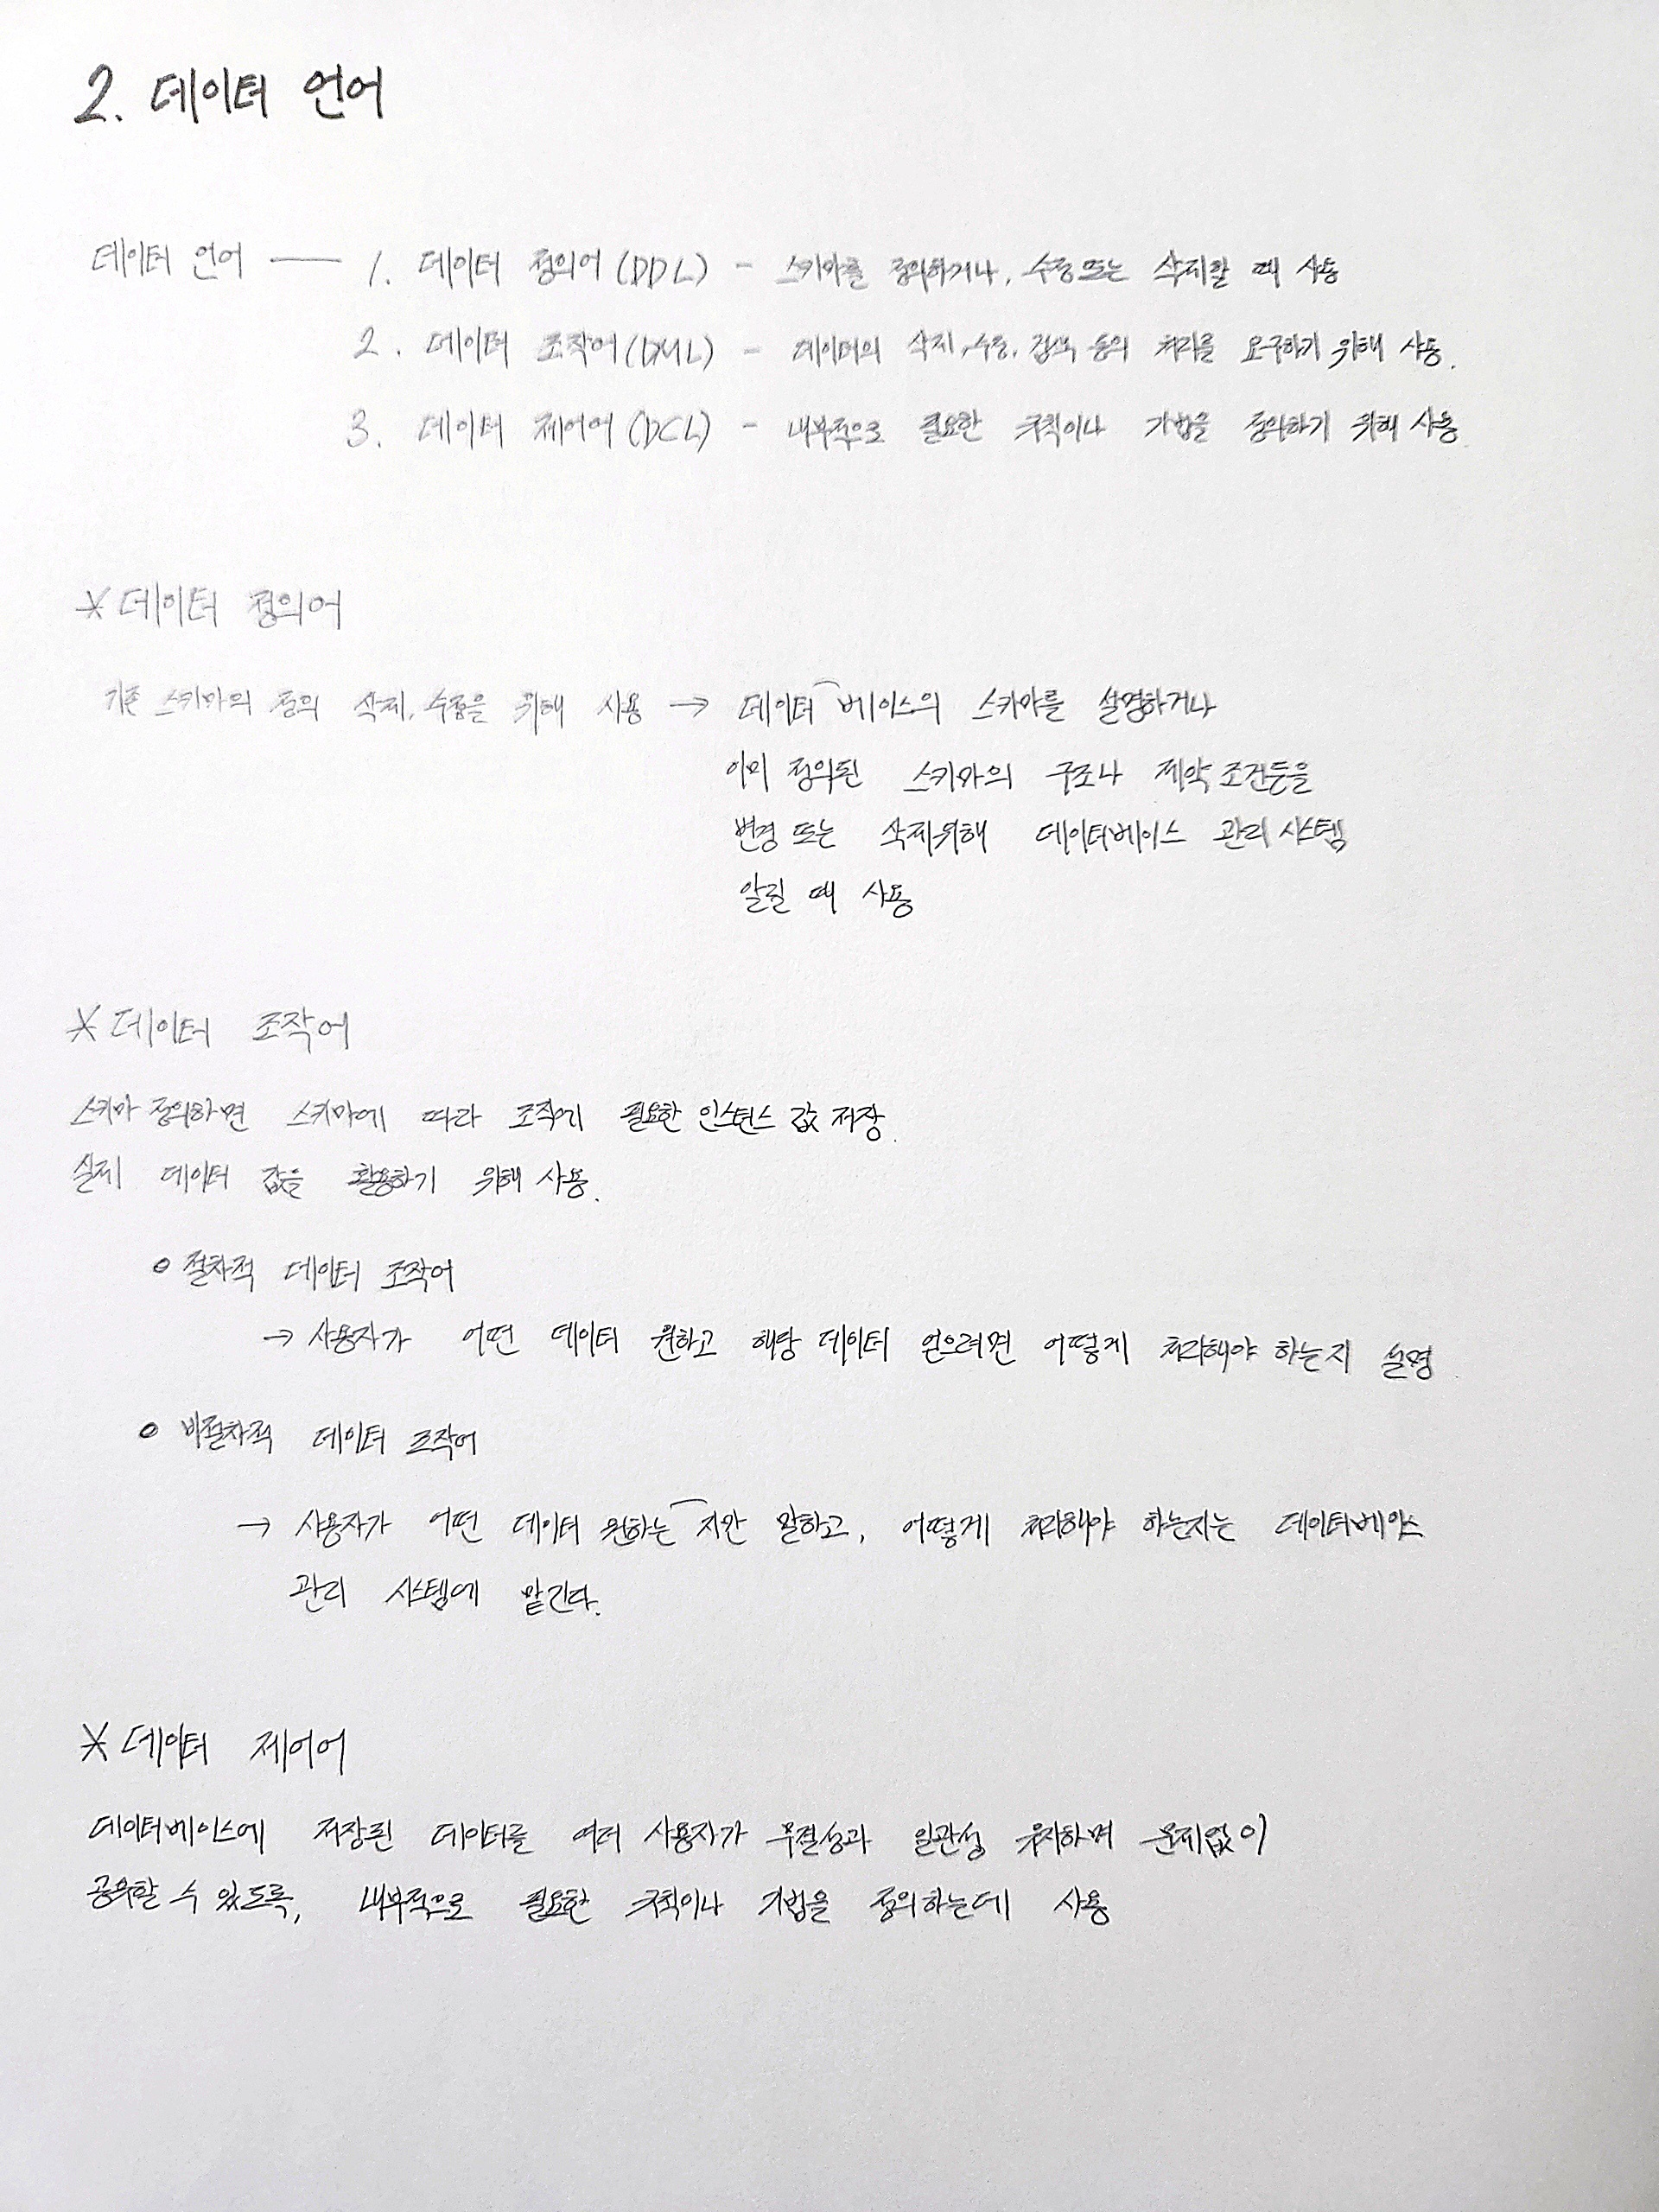 2. 데이터 언어
데이터 언어 — 1. 데이터 정의어 (DDL) - 스키마를 정의하거나, 수정 또는 삭제할 때 사용
2. 데이터 조작어 (DML) - 데이터의 삭제, 수정, 검색 등의 처리를 요구하기 위해 사용.
3. 데이터 제어어 (DCL) - 내부적으로 필요한 규칙이나 기법을 정의하기 위해 사용.
* 데이터 정의어
기존 스키마의 정의 삭제, 수정을 위해 사용 → 데이터 베이스의 스키마를 설명하거나
이미 정의된 스키마의 구조나 제약 조건등을
변경 또는 삭제위해 데이터베이스 관리 시스템
알릴 때 사용
* 데이터 조작어
스키마 정의하면 스키마에 따라 조작에 필요한 인스턴스 값 저장.
실제 데이터 값을 활용하기 위해 사용.
○ 절차적 데이터 조작어
→ 사용자가 어떤 데이터 원하고 해당 데이터 얻으려면 어떻게 처리해야 하는지 설명.
○ 비절차적 데이터 조작어
→ 사용자가 어떤 데이터 원하는 지만 말하고, 어떻게 처리해야 하는지는 데이터베이스
관리 시스템에 맡긴다.
* 데이터 제어어
데이터베이스에 저장된 데이터를 여러 사용자가 무결성과 일관성 유지하며 문제없이
공유할 수 있도록, 내부적으로 필요한 규칙이나 기법을 정의하는데 사용